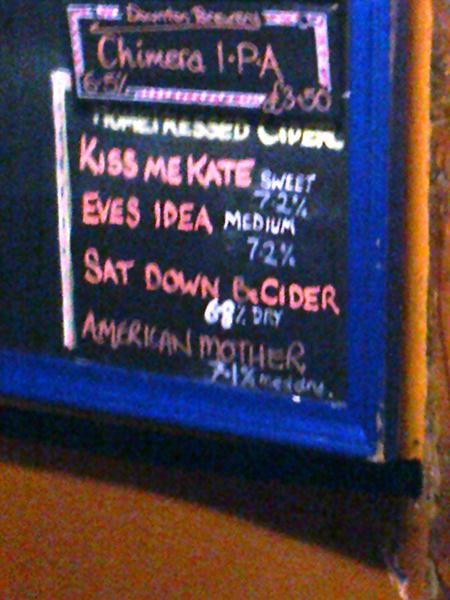 Downton Brewery
Chimera I.P.A
6.5% £3.50
HOMEPRESSED CIDER
KISS ME KATE SWEET
7.2%
EVES IDEA MEDIUM
7.2%
SAT DOWN BeCIDER
6.8% DRY
AMERICAN MOTHER
7.1%